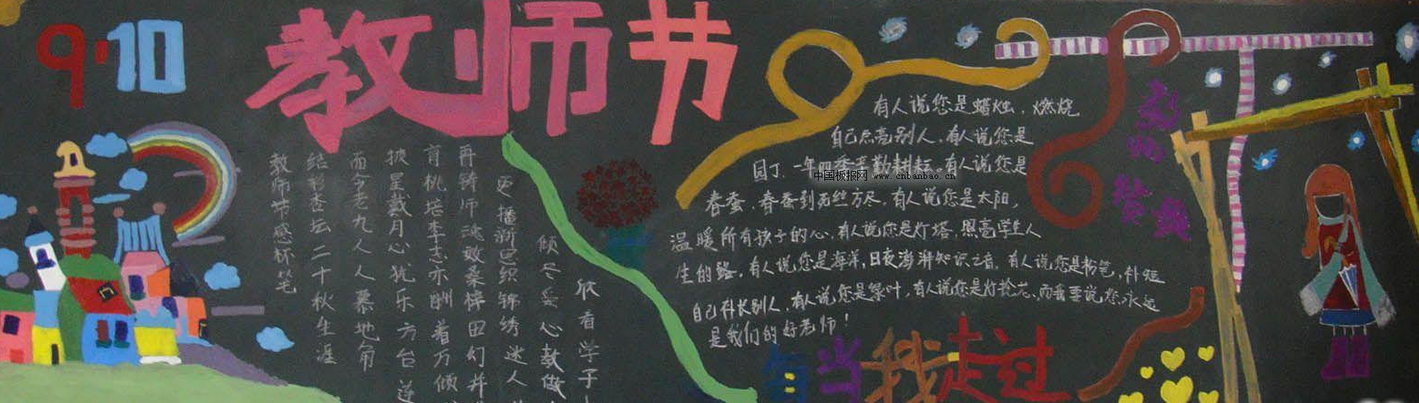 9·10
教师节
教师节感怀笔
结彩杏坛二十秋生涯
面
老九人人慕地角
披星戴月心犹乐方台
育桃培李志亦酬着万倾
再铸师魂效桑梓田幻并
更播新思织锦绣迷人
倾尽妥心教做
欣看学子
有人说您是蜡烛，燃烧
自己点亮别人，有人说您是
园丁，一年四季辛勤耕耘，有人说您是
中国板报网 www.cnbanbao.cn
春蚕，春蚕到死丝方尽，有人说您是太阳，
温暖所有孩子的心，有人说您是灯塔，照亮学生人
生的路，有人说您是海洋，日夜澎湃知识之音，有人说您是粉笔，补短
自己补长别人，有人说您是绿叶，有人说您是灯
，而我要说您永远
是我们的好老师！
每当我走过